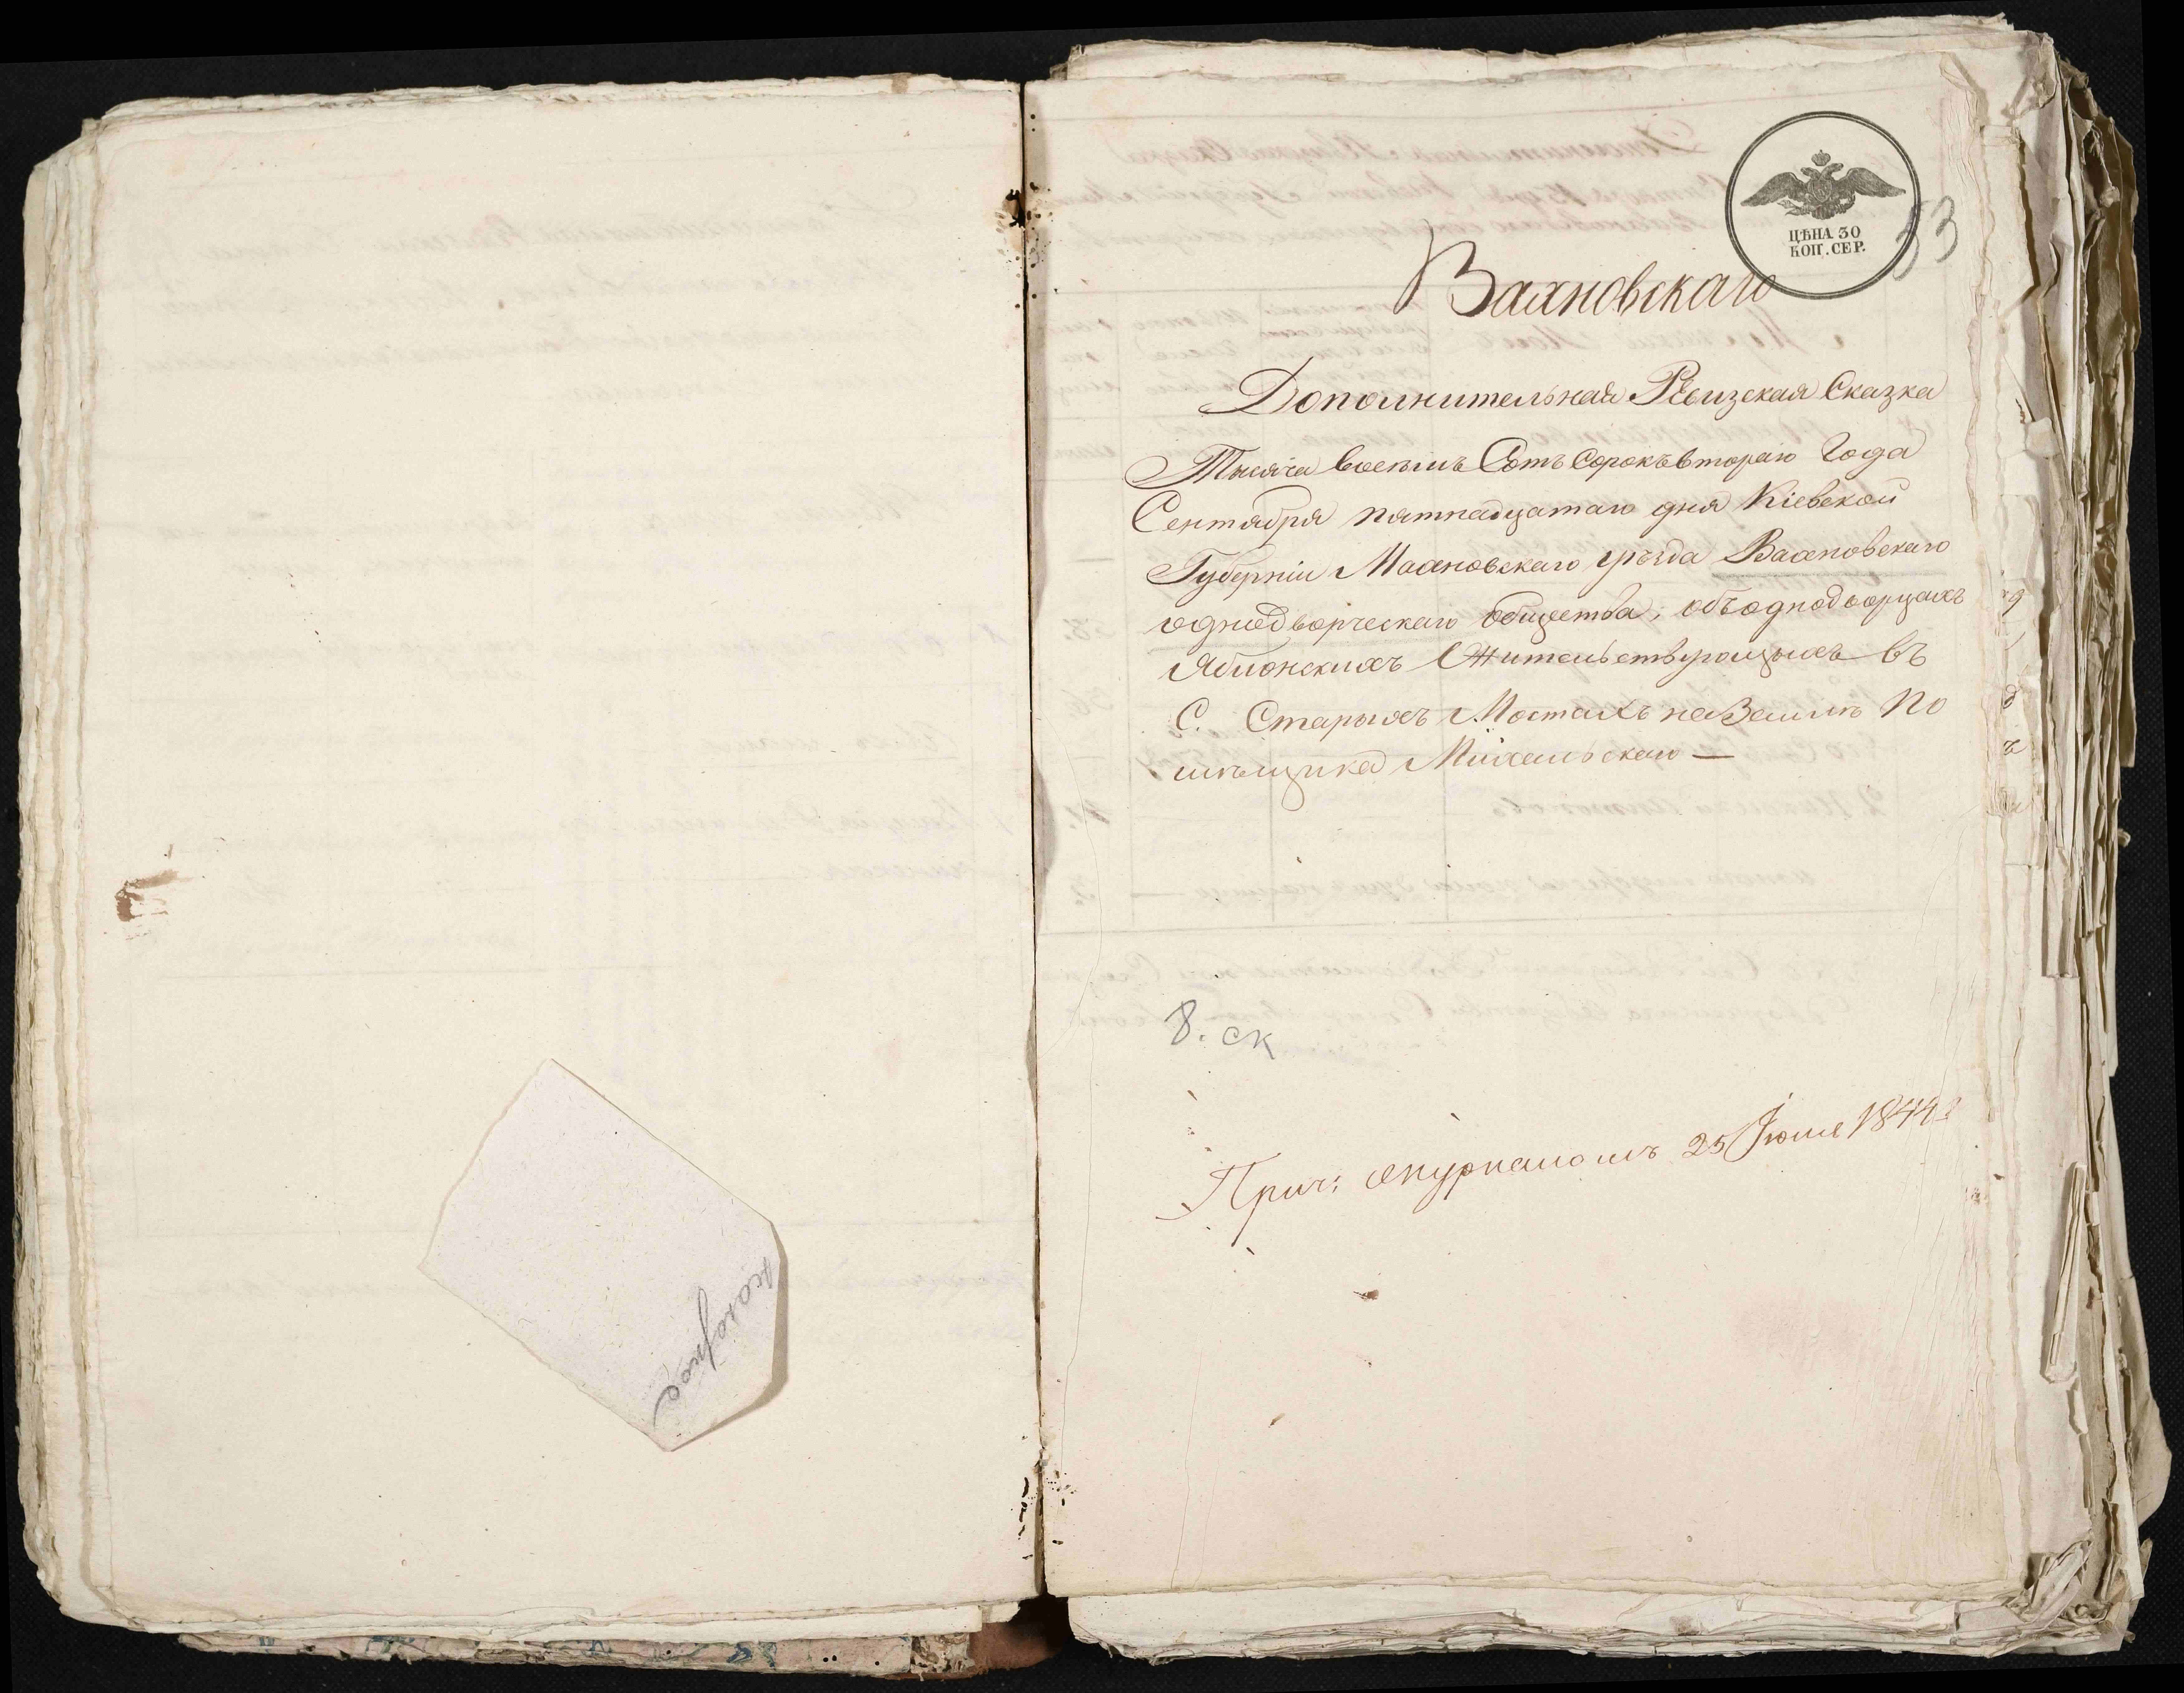 ЦѢНА 30
КОП. СЕР.
53
Вахновскаго
Дополнительная Ревизская Сказка
Тысяча восемь Сотъ Сорокъ втораго Года
Сентября пятнадцатаго дня Кіевской
Губерніи Махновскаго уѣзда Вахновскаго
однодворческаго общества, объ однодворцахъ
Яблонскихъ Жительствующихъ въ
С. Старыхъ Мостахъ на Землѣ По
мѣщика Михальскаго —
8. ск
При: журналомъ 25 Іюля 1844